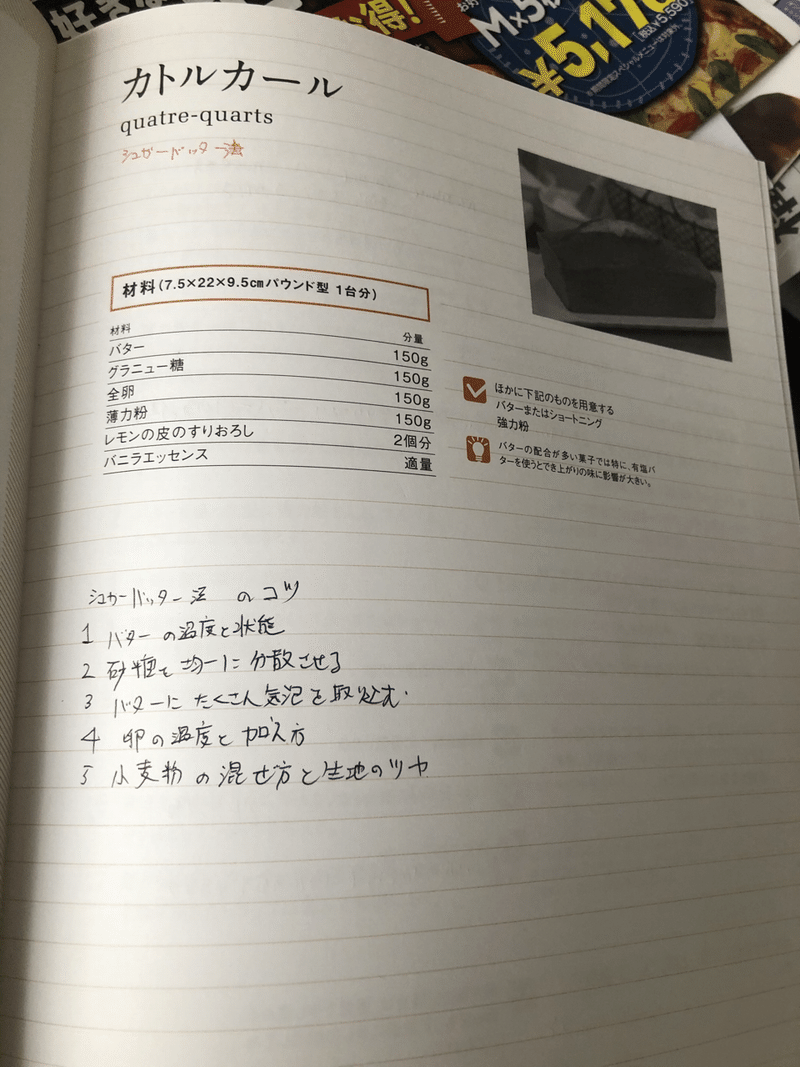 好き
お得!
M×5
¥5,17
[税込¥5,590
カトルカール
quatre-quarts
シュガーバッター法
材料(7.5×22×9.5cmパウンド型 1台分)
材料 分量
バター 150g
グラニュー糖 150g
全卵 150g
薄力粉 150g
レモンの皮のすりおろし 2個分
バニラエッセンス 適量
ほかに下記のものを用意する
バターまたはショートニング
強力粉
バターの配合が多い菓子では特に、有塩バ
ターを使うとでき上がりの味に影響が大きい。
シュガーバッター法 のコツ
1 バターの温度と状態
2 砂糖を均一に分散させる
3 バターに たくさん気泡を取り込む
4 卵の温度と加え方
5 小麦粉の混ぜ方と生地のツヤ